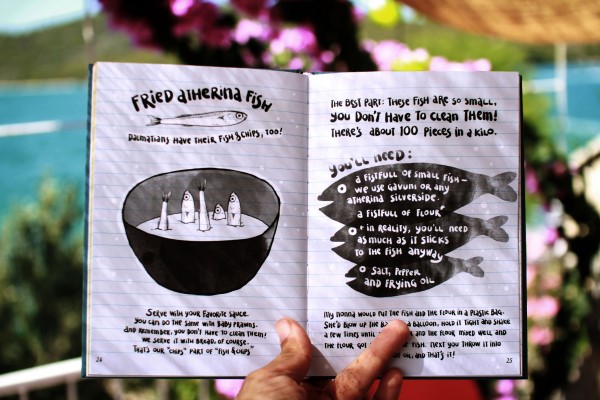 Fried atherina Fish
Dalmatians have their fish & chips, too!
Serve with your favorite sauce.
You can do the same with baby prawns.
And remember, you don't have to clean them!
We serve it with bread, of course.
That's our "chips" part of "fish & chips"
24
The best part: these fish are so small,
you Don't Have to Clean Them!
There's about 100 pieces in a kilo.
you'll need:
a fistfull of small fish –
we use gavuni or any
atherina silverside.
a fistfull of flour
+ in reality, you'll need
as much as it sticks
to the fish anyway
Salt, pepper
and frying oil
My nonna would put the fish and the flour in a plastic bag.
She'd blow up the balloon, hold it tight and shake
a few times until and the flour mixed well and
the flour got fish. Next you throw it into
oil, and that's it!
25